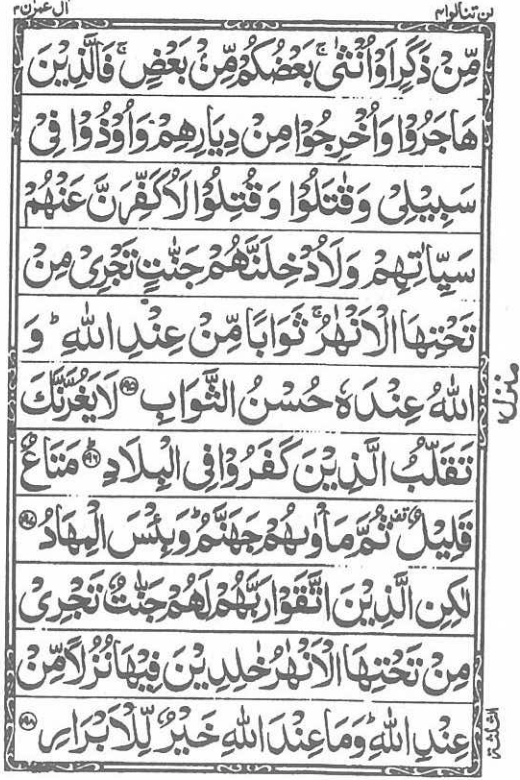 لن تنالوا ٤
اٰل عمرٰن ٣
مِّنْ ذَكَرٍ اَوْ اُنْثٰى ۚ بَعْضُكُمْ مِّنْۢ بَعْضٍ ۚ فَالَّذِيْنَ
هَاجَرُوْا وَاُخْرِجُوْا مِنْ دِيَارِهِمْ وَاُوْذُوْا فِيْ
سَبِيْلِيْ وَقٰتَلُوْا وَقُتِلُوْا لَاُكَفِّرَنَّ عَنْهُمْ
سَيِّاٰتِهِمْ وَلَاُدْخِلَنَّهُمْ جَنّٰتٍ تَجْرِيْ مِنْ
تَحْتِهَا الْاَنْهٰرُ ۚ ثَوَابًا مِّنْ عِنْدِ اللّٰهِ ؕ وَ
اللّٰهُ عِنْدَهٗ حُسْنُ الثَّوَابِ ﴿۱۹۵﴾ لَا يَغُرَّنَّكَ
تَقَلُّبُ الَّذِيْنَ كَفَرُوْا فِي الْبِلَادِ ﴿۱۹۶﴾ؕ مَتَاعٌ
قَلِيْلٌ ۟ ثُمَّ مَاْوٰىهُمْ جَهَنَّمُ ؕ وَبِئْسَ الْمِهَادُ ﴿۱۹۷﴾
لٰكِنِ الَّذِيْنَ اتَّقَوْا رَبَّهُمْ لَهُمْ جَنّٰتٌ تَجْرِيْ
مِنْ تَحْتِهَا الْاَنْهٰرُ خٰلِدِيْنَ فِيْهَا نُزُلًا مِّنْ
عِنْدِ اللّٰهِ ؕ وَمَا عِنْدَ اللّٰهِ خَيْرٌ لِّلْاَبْرَارِ ﴿۱۹۸﴾
منزل ١
الثلثة